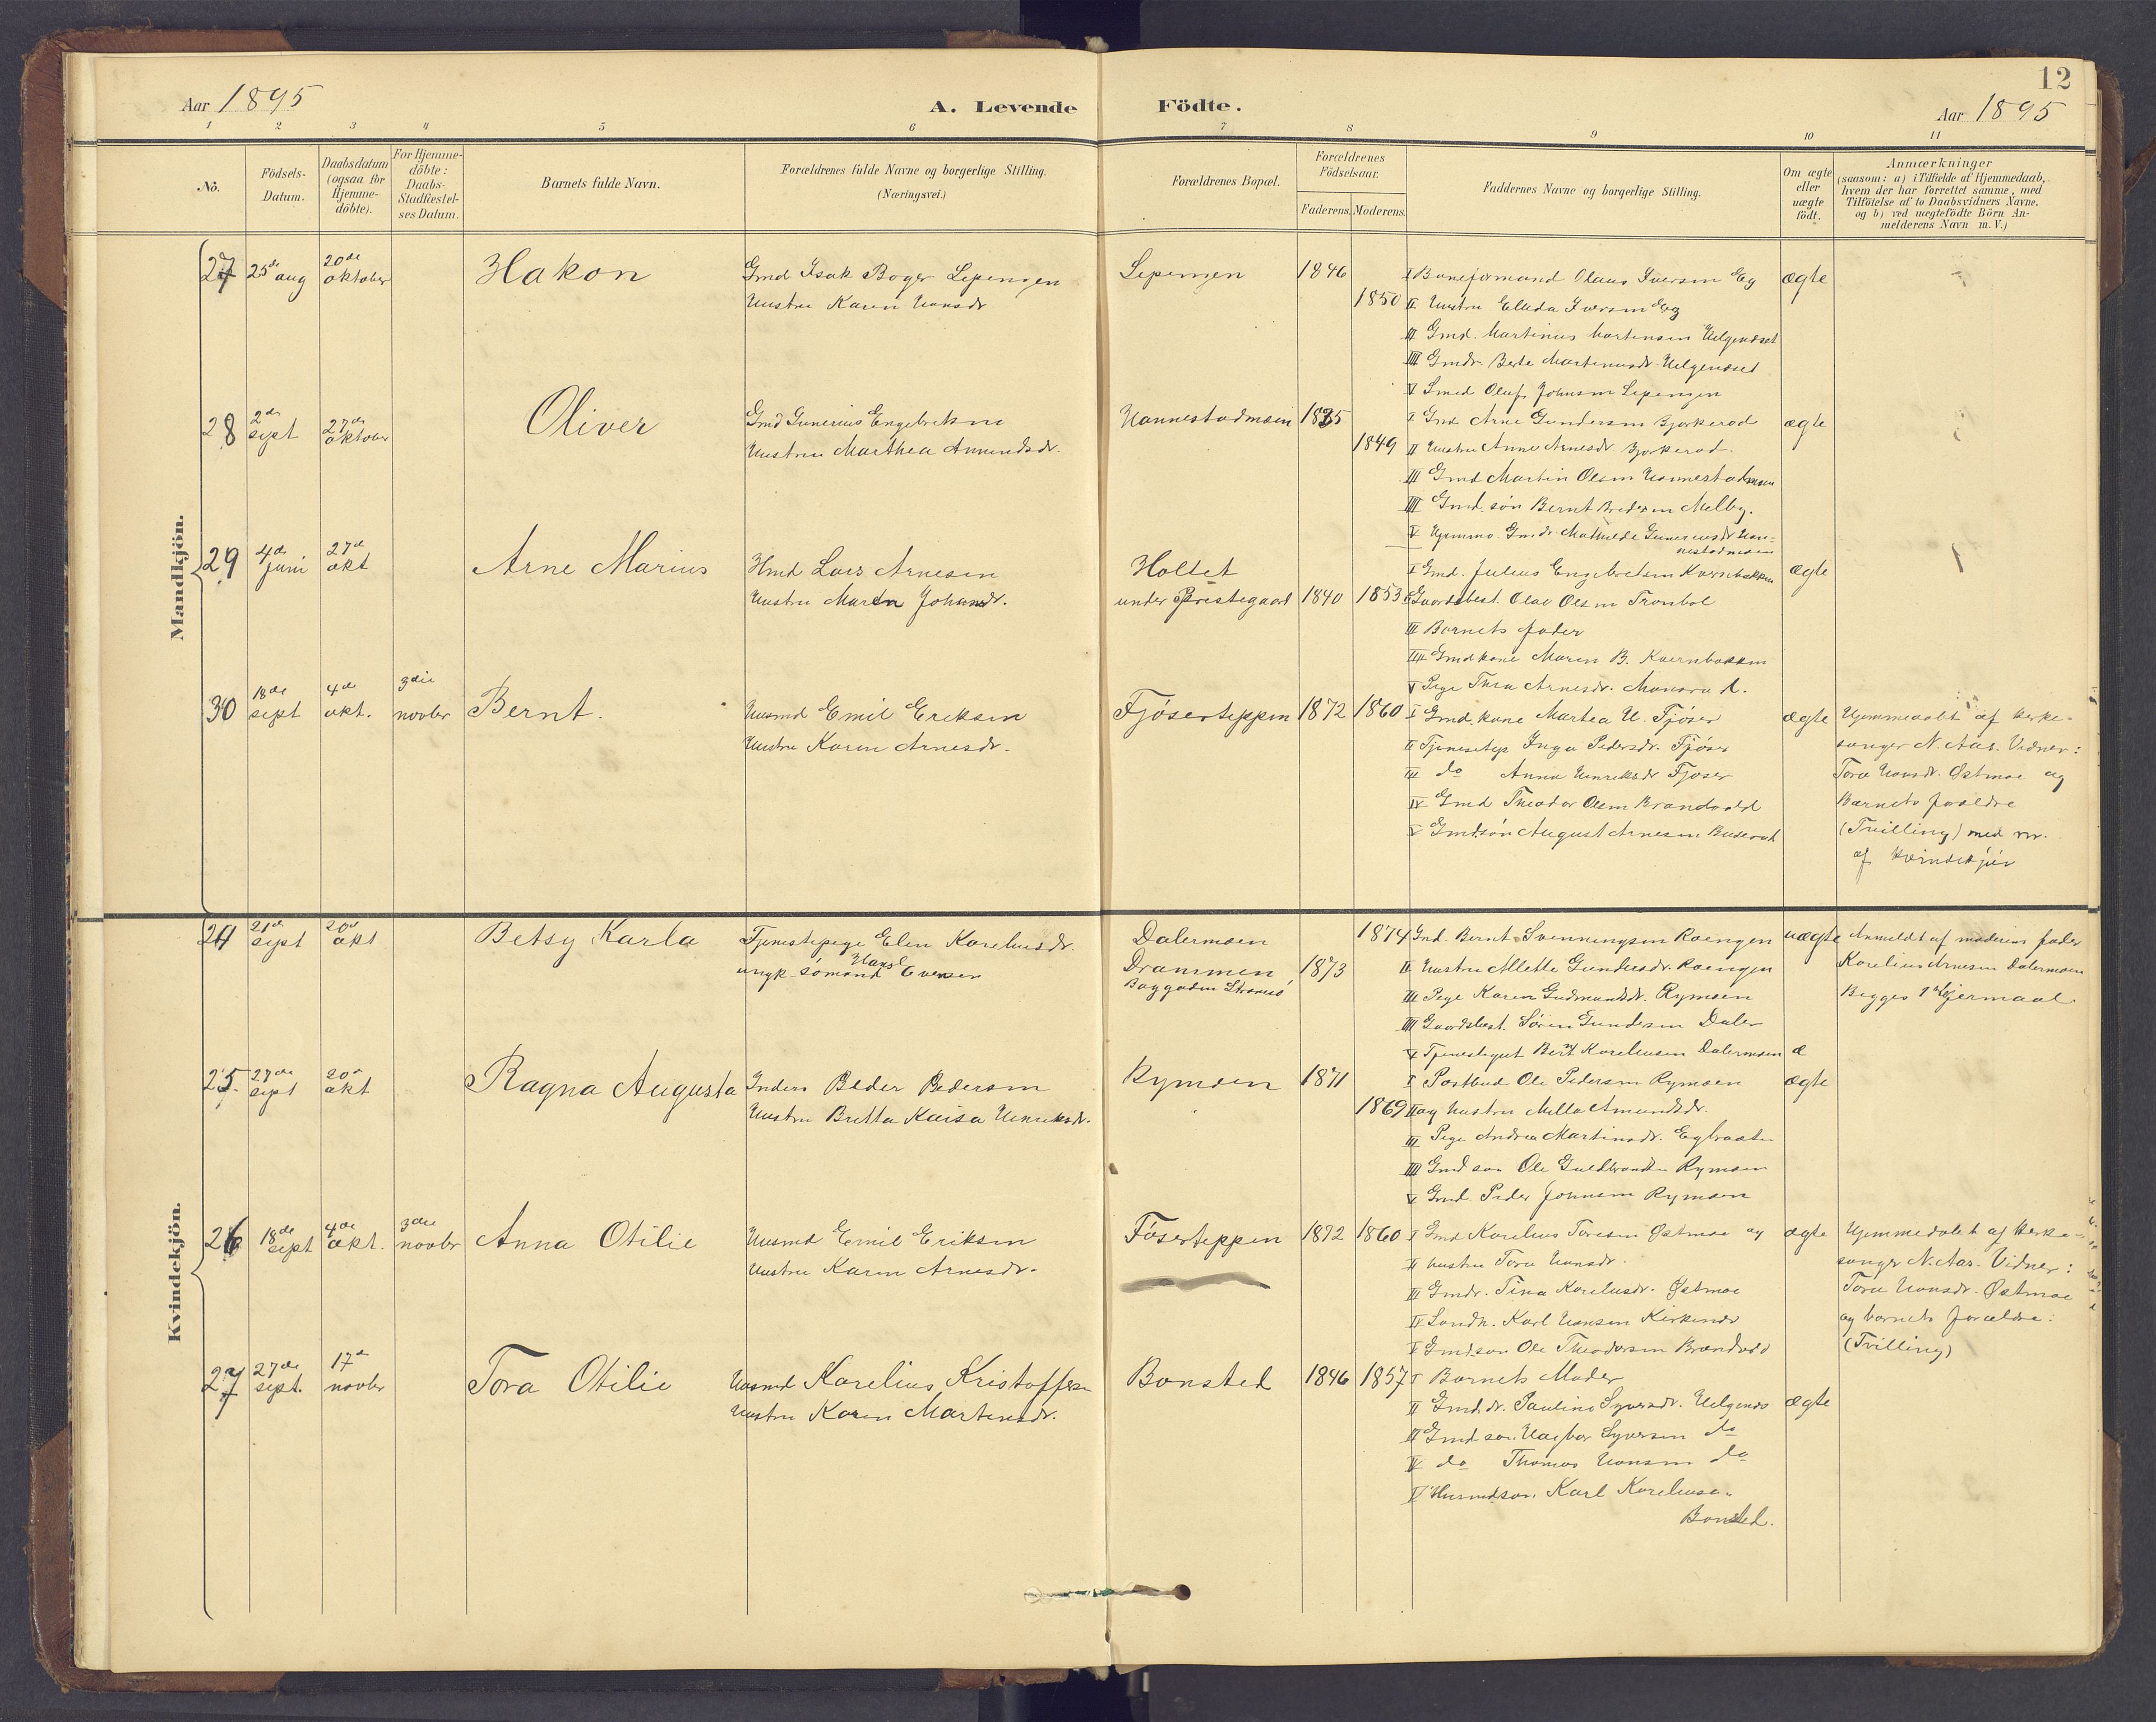 12
Aar 1895
A. Levende Födte.
Aar 1895
1 2 3 4 5 6 7 8 9 10 11
No.
Födsels-Datum.
Daabsdatum (ogsaa for Hjemme-döbte).
For Hjemme-döbte: Daabs-Stadfæstel-ses Datum.
Barnets fulde Navn.
Forældrenes fulde Navne og borgerlige Stilling.
(Næringsvei.)
Forældrenes Bopæl.
Forældrenes Födselsaar.
Faderens. Moderens.
Faddernes Navne og borgerlige Stilling.
Om ægte eller uægte födt.
Anmærkninger
(saasom: a) i Tilfælde af Hjemmedaab,
hvem der har forrettet samme, med
Tilföielse af to Daabsvidners Navne.
og b) ved uægtefödte Börn An-
melderens Navn m.V.)
Mandkjön.
27 25de aug 20de oktober Hakon
Gmd Isak Boger Lepengen
Hustru Karen Hansdr
Lepengen 1846
1850
I Baneformand Olaus Iversen Eg
II Hustru Elleda Iversen Eg
III Gmd. Martinus Mortensen Helgeneset
IIII Gmdr. Berte Martinusdr. Helgeneset
V Smed Oluf Johnsen Lepengen
ægte
28 2den sept 27de oktober Oliver
Gmd Gunerius Engebretsen
Hustru Marthea Amundsdr.
Hannestadmoen 1835
1849
I Gmd Arne Gundersen Bjorkerod
II Hustru Anne Arnesdr Bjorkerod.
III Gmd Martin Olsen Hannestadmoen
IIII Gmd. søn Bernt Melby.
V Hjemmev. Gmdr. Mathilde Guneriusdr Han-
nestadmoen
ægte
29 4de juni 27de okt Arne Marius
Hmd Lars Arnesen
Hustru Maren Johansdr.
Holtet
under Prestegaard 1840 1853
I Gmd. Julius Engebretsen Kvernbakken
II Gaardsbest. Olav Olsen Tronbøl
III Barnets fader
IIII Gmdkone Maren B. Kvernbakken
V Pige Thea Arnesdr.
ægte
30 18de sept 4de okt. 3die novbr Bernt.
Husmd Emil Eriksen
Hustru Karen Arnesdr.
Fjøserteppen 1872 1860
I Gmd. kone Martea H. Fjøser
II Tjenestep. Inga Pedersdr. Fjøser
III do Anna Henriksdr Fjøser
IV Gmd Theodor Olsen Brandvold
V Gmdsøn August Arnesen Buserod
ægte
Hjemmedøbt af kirke-
sanger N. Aas. Vidner:
Tora Hansdr. Østmoe og
Barnets forældre
(Tvilling) med nr.
af Kvindekjøn
Kvindekjön.
24 21de sept 20de okt Betsy Karla
Tjenestepige Elen Koreliusdr.
ungk. sømand Hans Evensen
Dalermoen
Drammen
Baggaden Strømsø
1874
1873
Gmd. Bernt Svenningsen Roengen
II Hustru Alette Gundersdr. Roengen
III Pige Karen Gudmundsdr. Rymoen
IIII Gaardsbest. Søren Gundersen Daler
V Tjenestegut Bernt Koreliusen Dalermoen
uægte
Anmeldt af moderens fader
Korelius Arnesen Dalermoen
Begges 1ste Leiermaal
25 27de sept 20de okt Ragna Augusta
Inders Peder Pedersen
Hustru Britta Kaisa Henriksdr.
Rymoen 1871
1869
I Postbud Ole Pedersen Rymoen
II og hustru Mille Amundsdr.
III Pige Andrea Martinsdr. Egbraaten
IIII Gmd søn Ole Guldbrandsen Rymoen
V Gmd. Peder Johnsen Rymoen
ægte
26 18de sept 4de okt. 3die novbr Anna Otilie
Husmd Emil Eriksen
Hustru Karen Arnesdr.
Føserteppen 1872 1860
I Gmd Korelius Toresen Østmoe og
II hustru Tora Hansdr.
III Gmdr. Tina Koreliusdr. Østmoe
IV Landh. Karl Hansen Kirkenær
V Gmd.søn Ole Theodorsen Brandvold
ægte
Hjemmedøbt af kirke-
sanger N. Aas. Vidner:
Tora Hansdr. Østmoe
og barnets forældre:
(Tvilling)
27 27de sept. 17de novbr Tora Otilie
Husmd Korelius Kristoffersen
Hustru Karen Martinsdr.
Bonsted 1846 1857
I Barnets Moder
II Gmd.dr. Pauline Syversdr. Helgenes
III Gmd søn. Hagbar Syversen do
IV do Thomas Hansen do
V Husmdsøn. Karl Koreliusen
Bonsted.
ægte